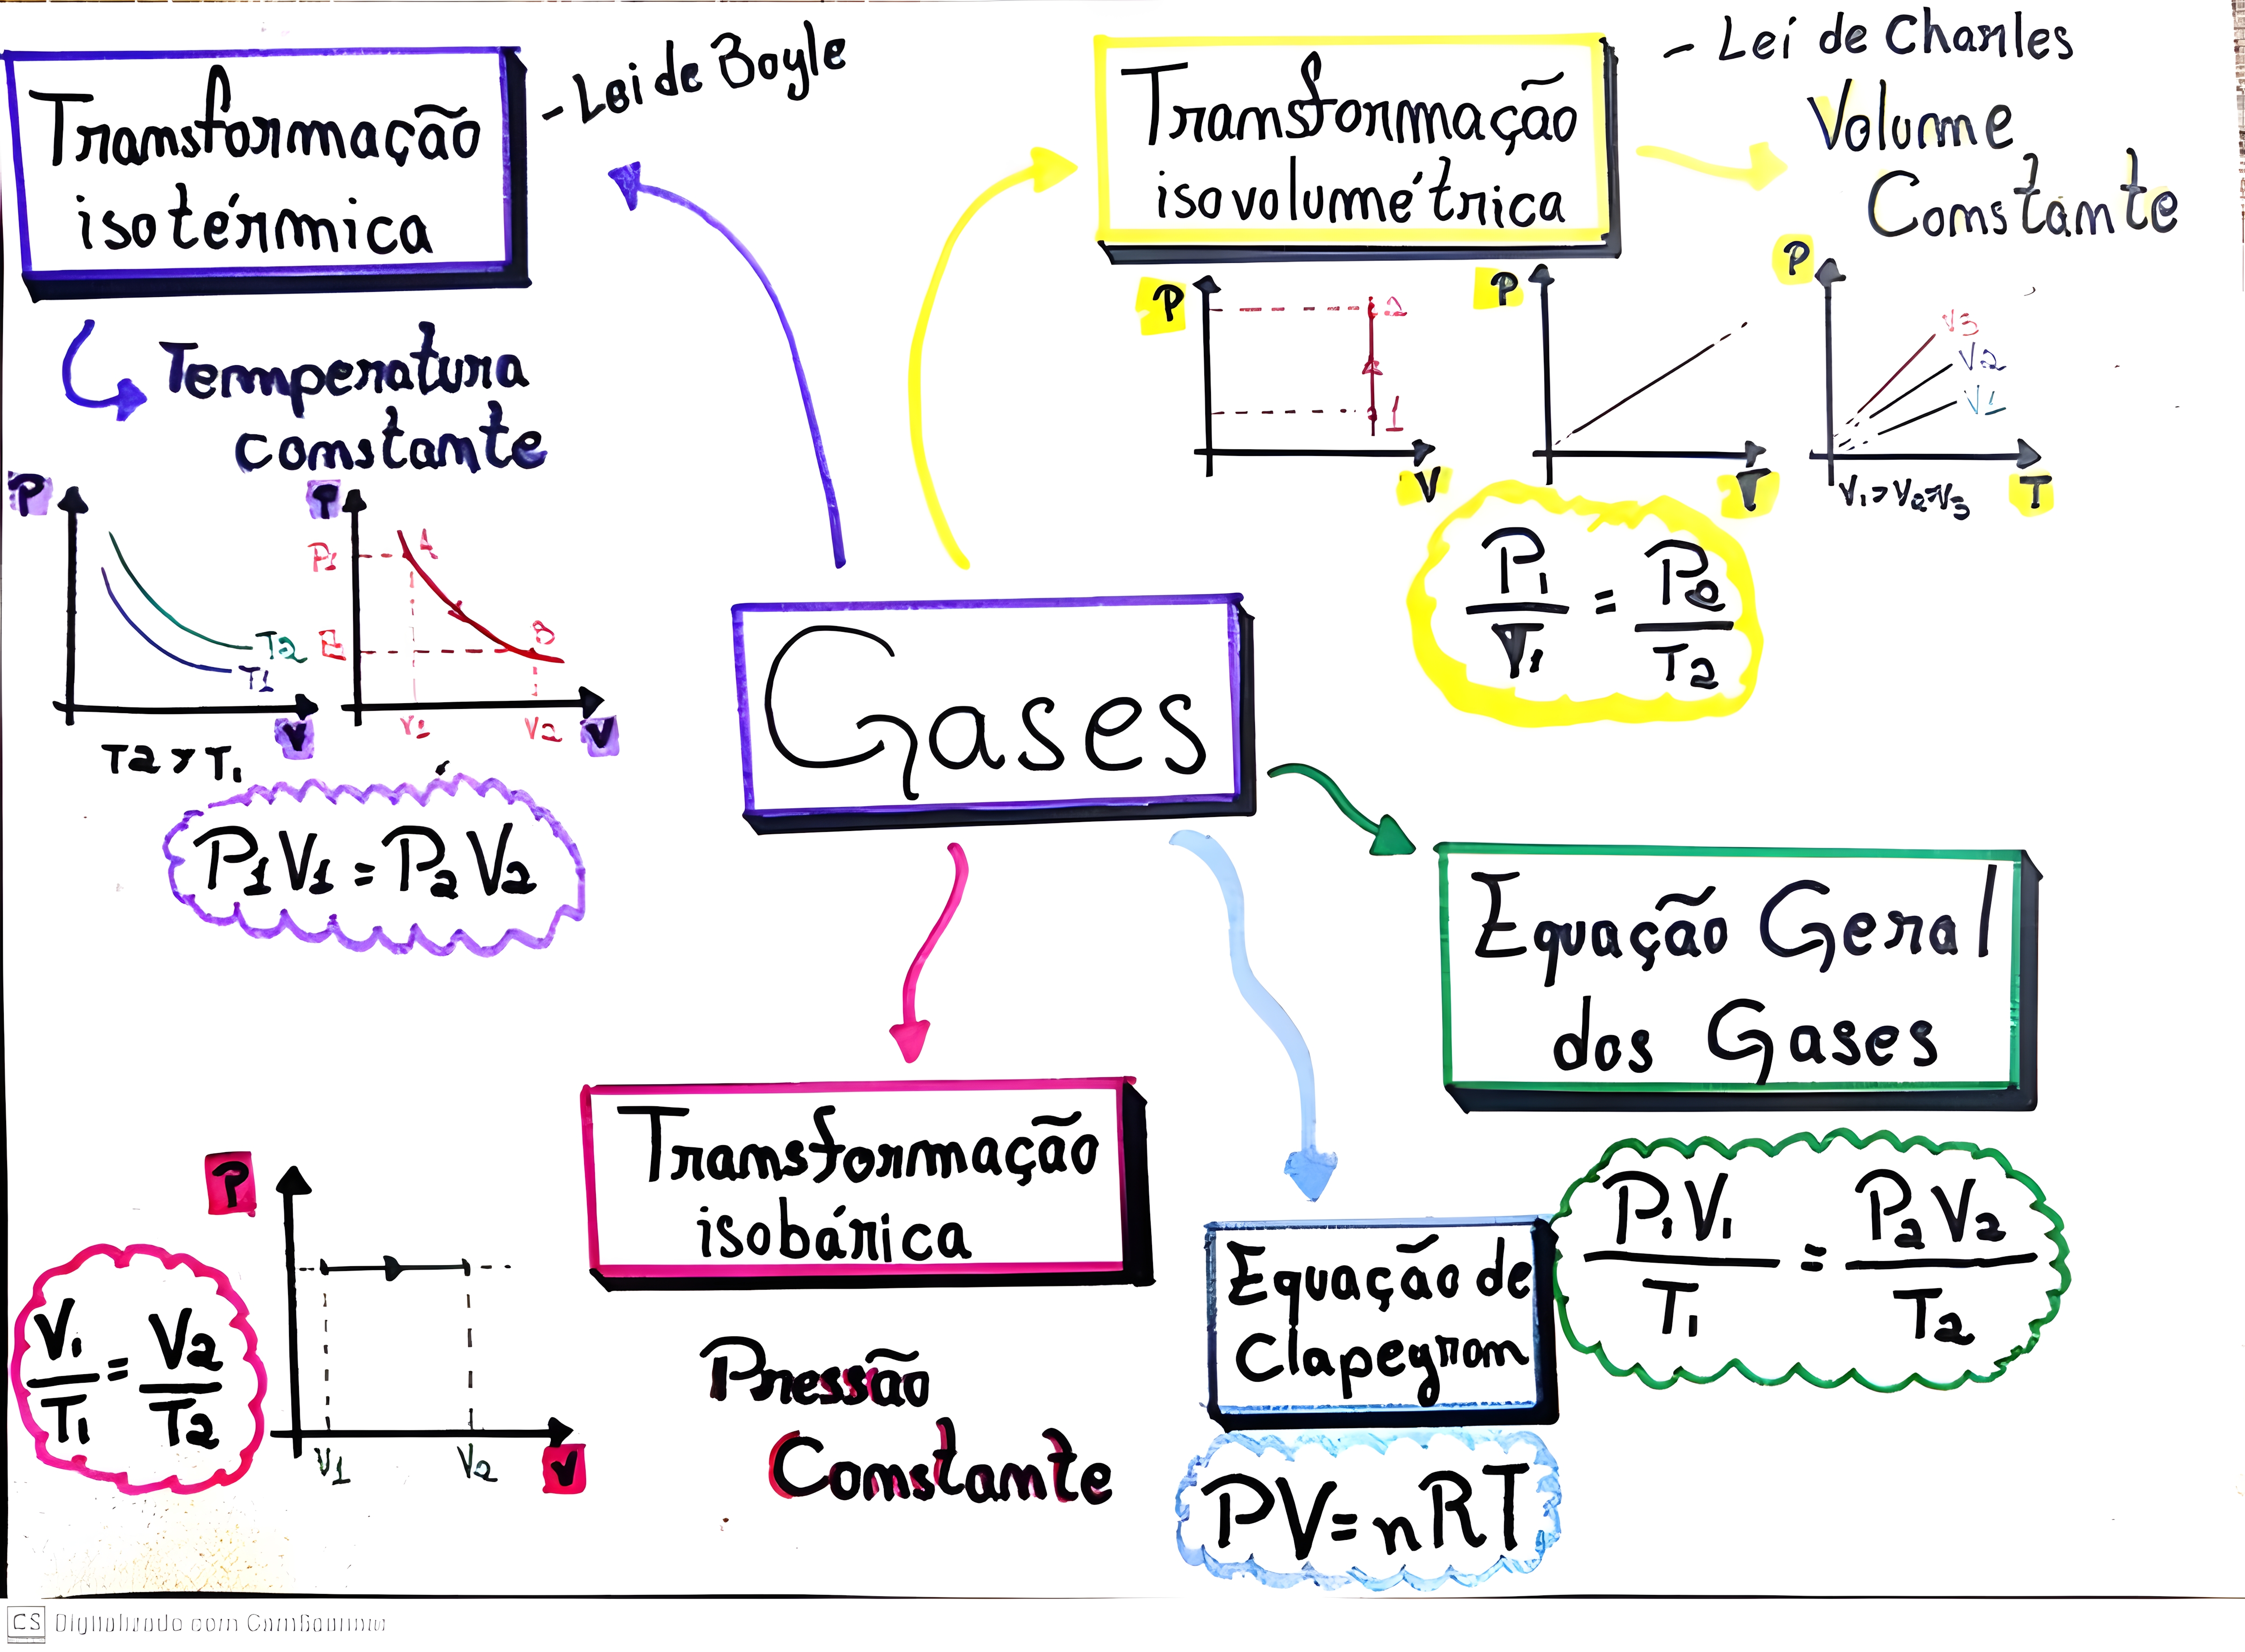 Transformação
isotérmica
- Lei de Boyle
Temperatura
constante
P
T2
T1
V
T2 > T1
P
P1
A
B
V1
V2
V
P1V1 = P2V2
Transformação
isovolumétrica
- Lei de Charles
Volume
Constante
P
2
1
V
P
T
P
V3
V2
V1
T
V1 > V2 > V3
P1/T1 = P2/T2
Gases
Equação Geral
dos Gases
P1V1/T1 = P2V2/T2
Transformação
isobárica
Pressão
Constante
P
V1
V2
V
V1/T1 = V2/T2
Equação de
Clapeyron
PV = nRT
CS Digitalizado com CamScanner